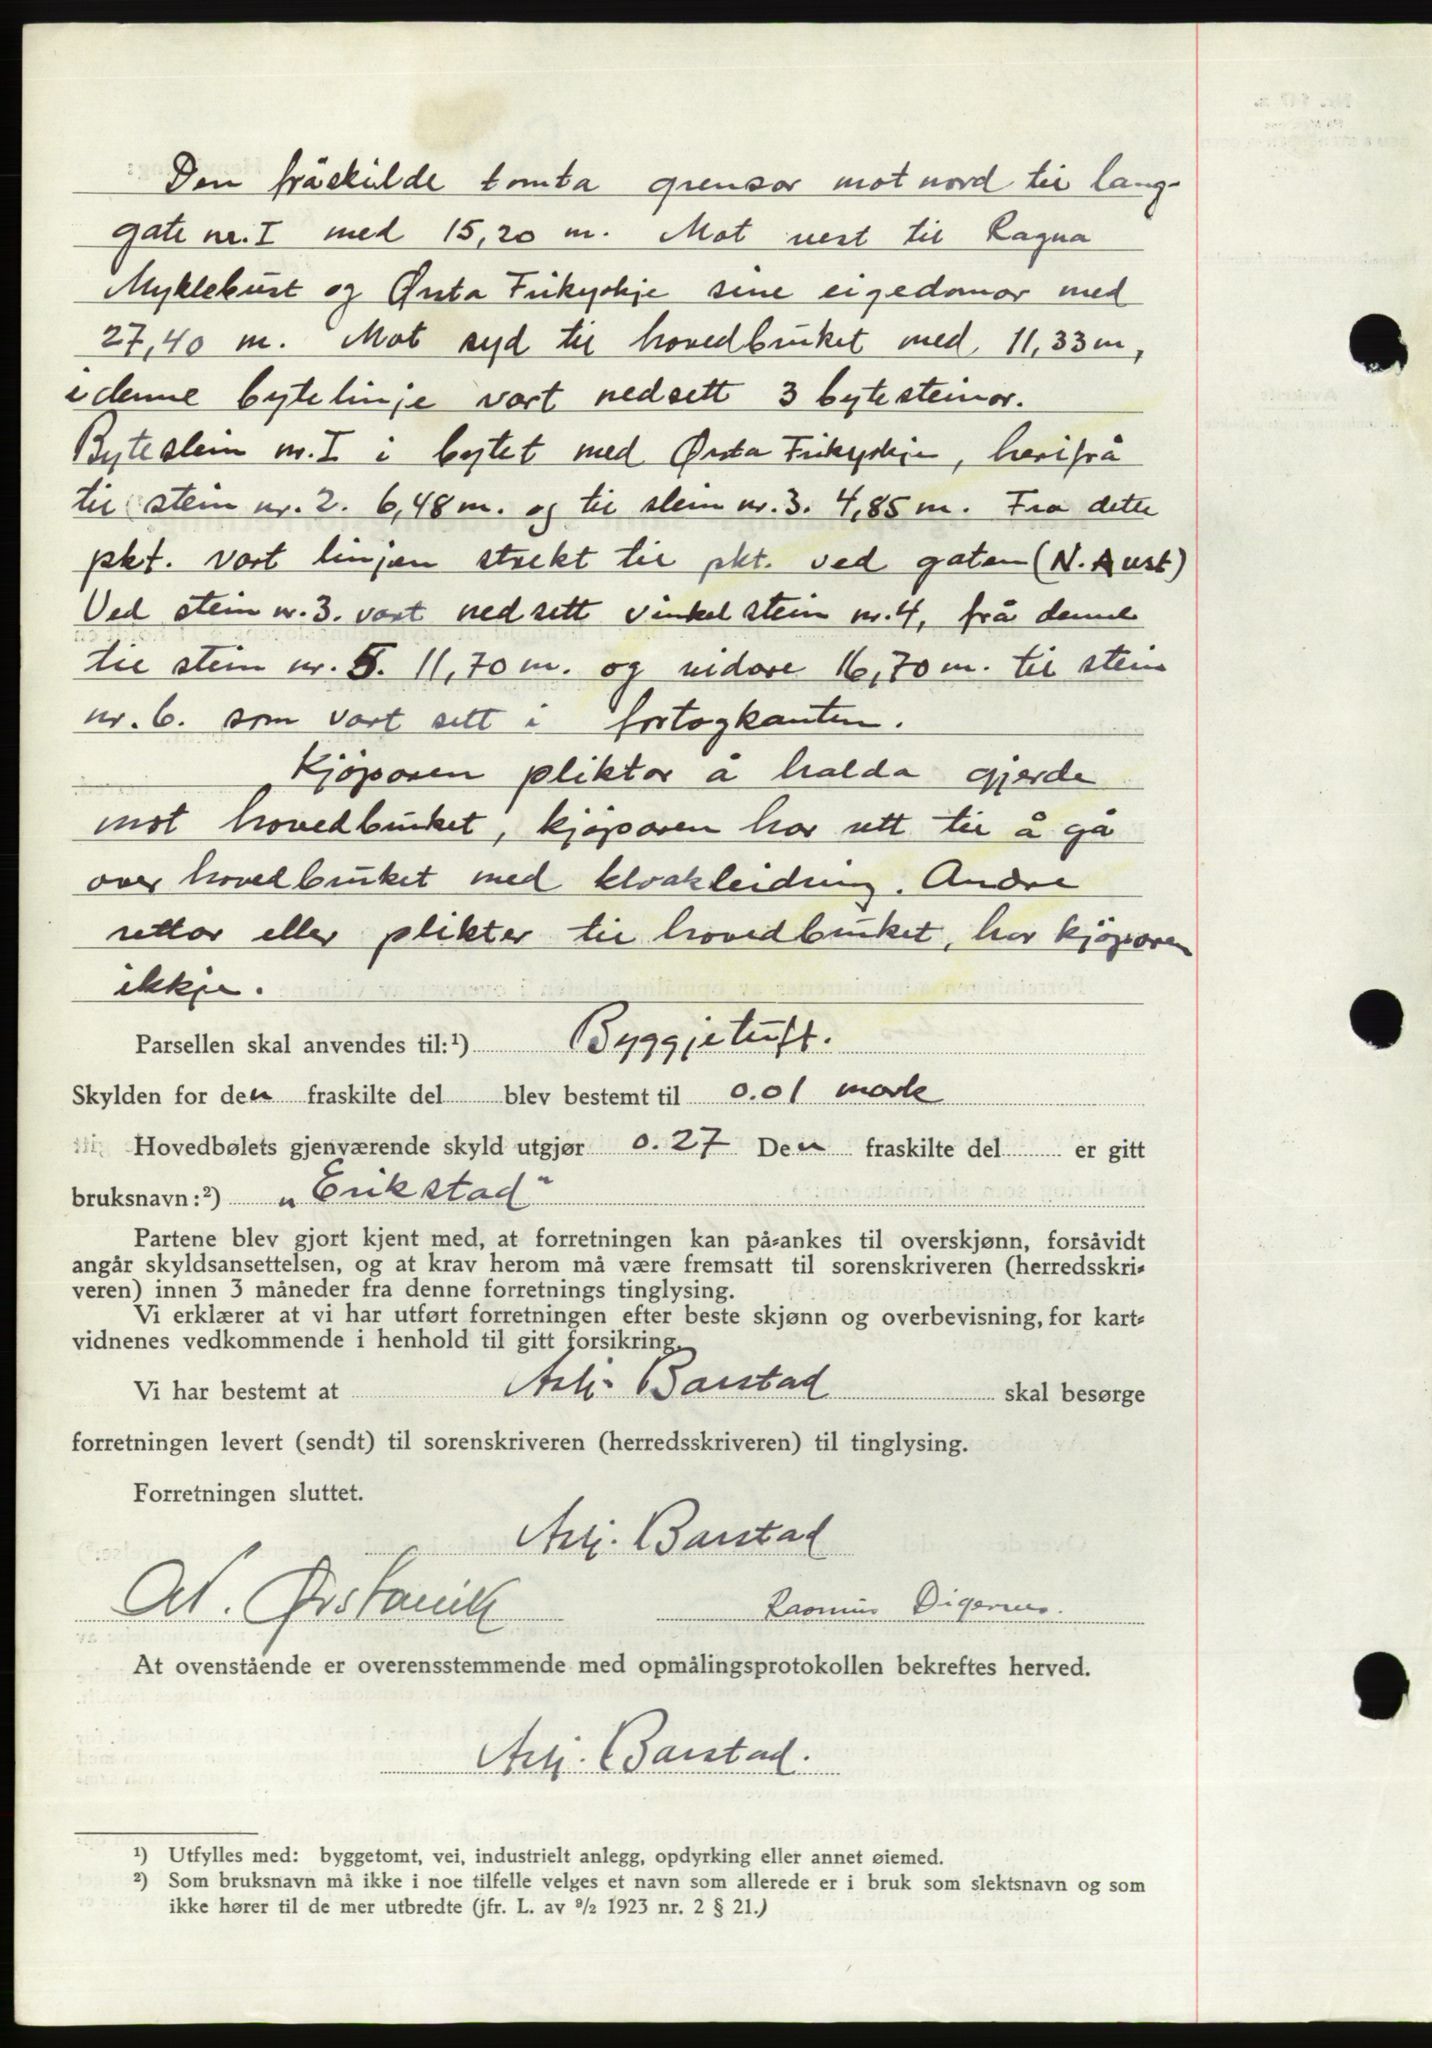 Den fråskilde tomta grensar mot nord til lang-
gate nr. I med 15,20 m. Mot vest til Ragna
Myklebust og Ørsta Frikyrkje sine eigedomar med
27,40 m. Mot syd til hovedbruket med 11,33 m,
i denne bytelinje vart nedsett 3 bytesteinar.
Bytestein nr. I i bytet med Ørsta Frikyrkje, herifrå
til stein nr. 2. 6,48 m. og til stein nr. 3. 4,85 m. Fra dette
pkt. vart linjen strekt til pkt. ved gaten (N. Aust)
Ved stein nr. 3. vart nedsett vinkelstein nr. 4, frå denne
til stein nr. 5. 11,70 m. og vidare 16,70 m. til stein
nr. 6. som vart sett i fortogkanten.
Kjöparen pliktar å halda gjerde
mot hovedbruket, kjöparen har rett til å gå
over hovedbruket med kloakleidning. Andre
rettar eller plikter til hovedbruket, har kjöparen
ikkje.
Parsellen skal anvendes til:¹) Byggjetuft.
Skylden for den fraskilte del blev bestemt til 0.01 mark
Hovedbølets gjenværende skyld utgjør 0.27 Den fraskilte del er gitt
bruksnavn:²) „Erikstad"
Partene blev gjort kjent med, at forretningen kan på-ankes til overskjønn, forsåvidt
angår skyldsansettelsen, og at krav herom må være fremsatt til sorenskriveren (herredsskri-
veren) innen 3 måneder fra denne forretnings tinglysing.
Vi erklærer at vi har utført forretningen efter beste skjønn og overbevisning, for kart-
vidnenes vedkommende i henhold til gitt forsikring.
Vi har bestemt at Asbj. Barstad skal besørge
forretningen levert (sendt) til sorenskriveren (herredsskriveren) til tinglysing.
Forretningen sluttet.
Asbj. Barstad
Ørstavik Rasmus Digernes.
At ovenstående er overensstemmende med opmålingsprotokollen bekreftes herved.
Asbj. Barstad.
¹) Utfylles med: byggetomt, vei, industrielt anlegg, opdyrking eller annet øiemed.
²) Som bruksnavn må ikke i noe tilfelle velges et navn som allerede er i bruk som slektsnavn og som
ikke hører til de mer utbredte (jfr. L. av 9/2 1923 nr. 2 § 21.)